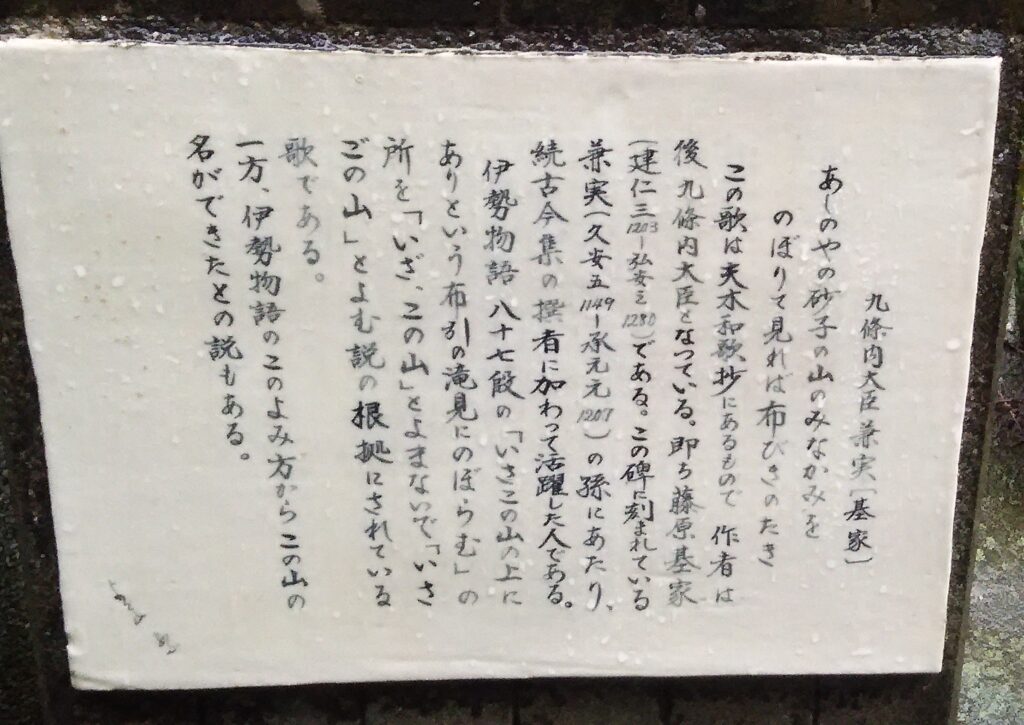 九條内大臣兼実〔基家〕
あしのやの砂子の山のみなかみを
のぼりて見れば布びきのたき
この歌は夫木和歌抄にあるもので 作者は
後九條内大臣となっている。即ち藤原基家
(建仁三1203ー弘安三1280)である。この碑に刻まれている
兼実(久安五1149ー承元元1207)の孫にあたり、
続古今集の撰者に加わって活躍した人である。
伊勢物語 八十七段の「いさこの山の上に
ありという布引の滝見にのぼらむ」の
所を「いざ、この山」とよまないで「いさ
ごの山」とよむ説の根拠にされている
歌である。
一方、伊勢物語のこのよみ方からこの山の
名ができたとの説もある。